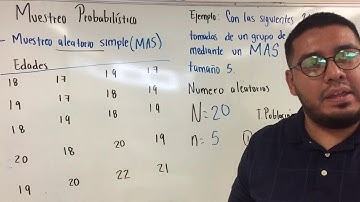 Muestreo Probabilístico
- Muestreo aleatorio simple (MAS)
Edades
18 17 19 17
19 17 18 19
18 19 18
20 18 20 19
19 20 22 21
Ejemplo: Con las siguientes
tomadas de un grupo de
mediante un MAS
tamaño 5.
Numero aleatorios
N=20
n=5
T. Població